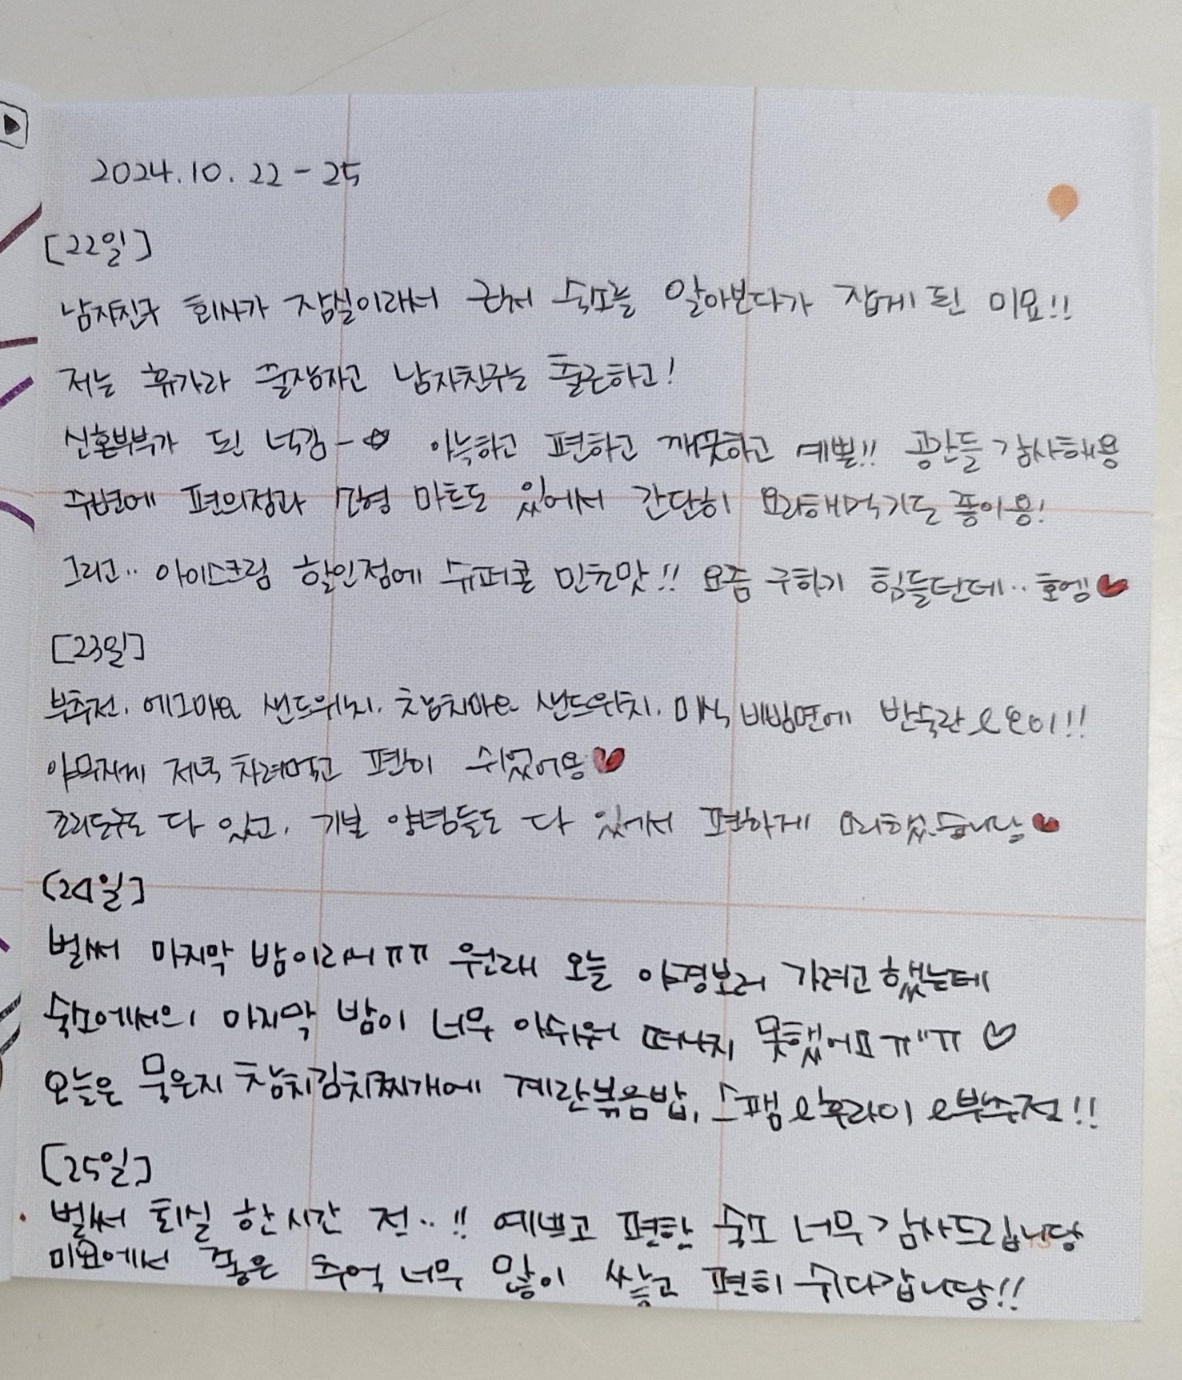 2024.10.22-25
[22일]
남자친구 회사가 잠실이라서 근처 숙소를 알아보다가 잡게 된 미묘!!
저는 휴가라 꿀잠자고 남자친구는 출근하고!
신혼부부가 된 넉감-♡ 아늑하고 편하고 깨끗하고 예쁜!! 공간들 감사해용
주변에 편의점과 대형 마트도 있어서 간단히 요리해먹기도 좋아용!
그리고.. 아이스크림 할인점에 슈퍼콘 민초맛!! 요즘 구하기 힘들던데.. 호엥♥
[23일]
부추전, 에그마요 샌드위치, 참치마요 샌드위치, 매식 비빔면에 반숙란 오이!!
야무지게 저녁 차려먹고 편히 쉬었어용♥
조리도구도 다 있고, 기본 양념들도 다 있어서 편하게 요리했습니당♥
[24일]
벌써 마지막 밤이라서ㅠㅠ 원래 오늘 야경보러 가려고 했는데
숙소에서의 마지막 밤이 너무 아쉬워 떠나지 못했어요ㅠ"ㅠ ♡
오늘은 묵은지 참치김치찌개에 계란볶음밥, 스팸 후라이 부추전!!
[25일]
벌써 퇴실 한시간 전..!! 예쁘고 편한 숙소 너무 감사드립니당
미묘에서 좋은 추억 너무 많이 쌓고 편히 쉬다갑니당!!